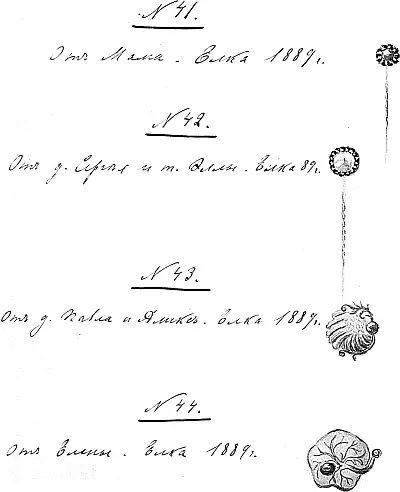 N 41.
Отъ Мама. Елка 1889г.
N 42.
Отъ д. Сергѣя и т. Эллы. Елка 89г.
N 43.
Отъ д. Павла и Аликсъ. Елка 1889г.
N 44.
Отъ Елены. Елка 1889г.